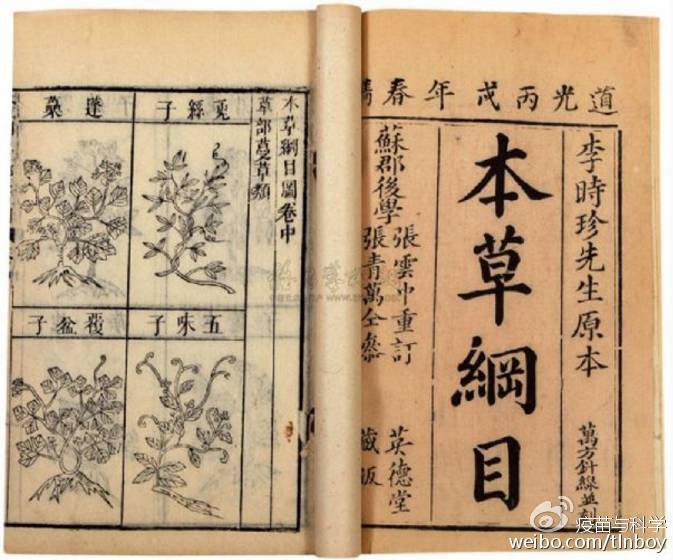 道光丙戌年春
李時珍先生原本
萬方針線並刻
本草綱目
蘇郡後學
張雲中重訂
張青萬仝參
英德堂
藏版
本草綱目圖卷中
草部蔓草類
兎絲子
蓬蔂
五味子
覆盆子
疫苗与科学
weibo.com/tlnboy